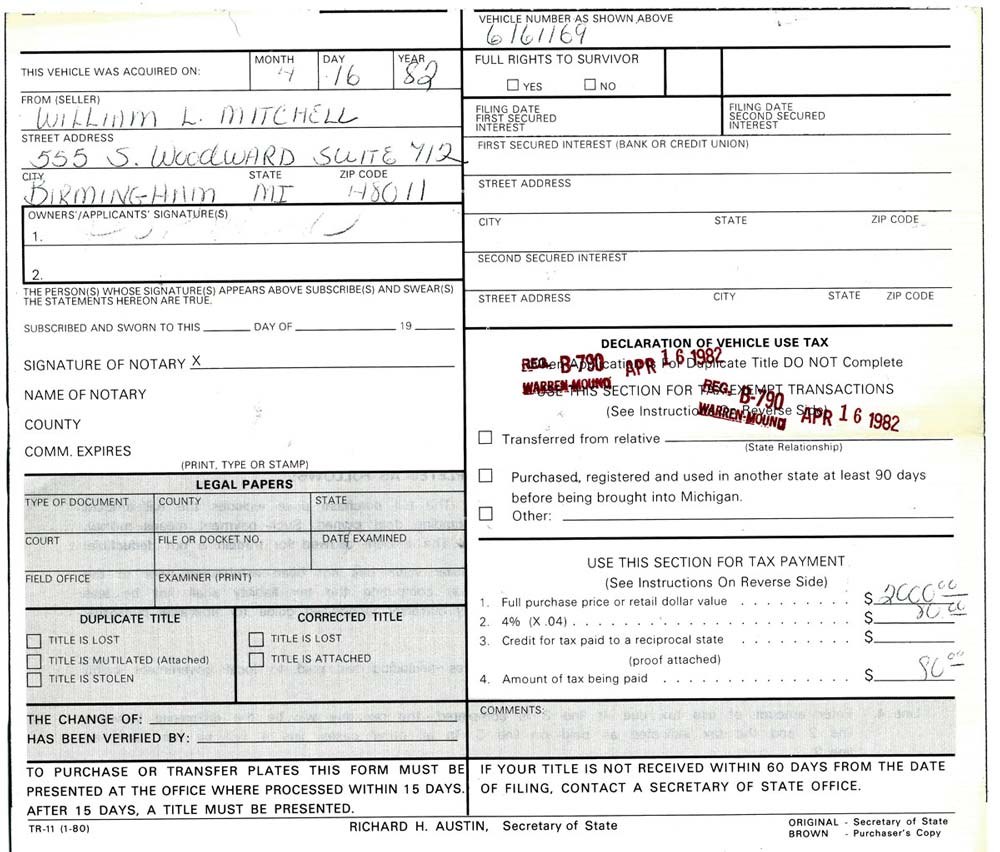 VEHICLE NUMBER AS SHOWN ABOVE
6161169
THIS VEHICLE WAS ACQUIRED ON:
MONTH DAY YEAR
4 16 82
FULL RIGHTS TO SURVIVOR
YES NO
FROM (SELLER)
WILLIAM L. MITCHELL
STREET ADDRESS
555 S. WOODWARD SUITE 712
CITY STATE ZIP CODE
BIRMINGHAM MI 48011
OWNERS'/APPLICANTS' SIGNATURE(S)
1.
2.
THE PERSON(S) WHOSE SIGNATURE(S) APPEARS ABOVE SUBSCRIBE(S) AND SWEAR(S)
THE STATEMENTS HEREON ARE TRUE.
SUBSCRIBED AND SWORN TO THIS DAY OF 19
SIGNATURE OF NOTARY X
NAME OF NOTARY
COUNTY
COMM. EXPIRES
(PRINT, TYPE OR STAMP)
LEGAL PAPERS
TYPE OF DOCUMENT COUNTY STATE
COURT FILE OR DOCKET NO. DATE EXAMINED
FIELD OFFICE EXAMINER (PRINT)
DUPLICATE TITLE
TITLE IS LOST
TITLE IS MUTILATED (Attached)
TITLE IS STOLEN
CORRECTED TITLE
TITLE IS LOST
TITLE IS ATTACHED
THE CHANGE OF:
HAS BEEN VERIFIED BY:
TO PURCHASE OR TRANSFER PLATES THIS FORM MUST BE
PRESENTED AT THE OFFICE WHERE PROCESSED WITHIN 15 DAYS.
AFTER 15 DAYS, A TITLE MUST BE PRESENTED.
FILING DATE
FIRST SECURED
INTEREST
FILING DATE
SECOND SECURED
INTEREST
FIRST SECURED INTEREST (BANK OR CREDIT UNION)
STREET ADDRESS
CITY STATE ZIP CODE
SECOND SECURED INTEREST
STREET ADDRESS CITY STATE ZIP CODE
DECLARATION OF VEHICLE USE TAX
When Application Is For Duplicate Title DO NOT Complete
USE THIS SECTION FOR TAX EXEMPT TRANSACTIONS
(See Instructions On Reverse Side)
REG. B-790 APR 16 1982
WARREN-MOUND
REG. B-790
WARREN-MOUND APR 16 1982
Transferred from relative
(State Relationship)
Purchased, registered and used in another state at least 90 days
before being brought into Michigan.
Other:
USE THIS SECTION FOR TAX PAYMENT
(See Instructions On Reverse Side)
1. Full purchase price or retail dollar value . . . . . . . . . $ 2000.00
2. 4% (X .04) . . . . . . . . . . . . . . . . . . . . . . $ 80.00
3. Credit for tax paid to a reciprocal state . . . . . . . . . $
(proof attached)
4. Amount of tax being paid . . . . . . . . . . . . . . $ 80.00
COMMENTS:
IF YOUR TITLE IS NOT RECEIVED WITHIN 60 DAYS FROM THE DATE
OF FILING, CONTACT A SECRETARY OF STATE OFFICE.
TR-11 (1-80)
RICHARD H. AUSTIN, Secretary of State
ORIGINAL - Secretary of State
BROWN - Purchaser's Copy